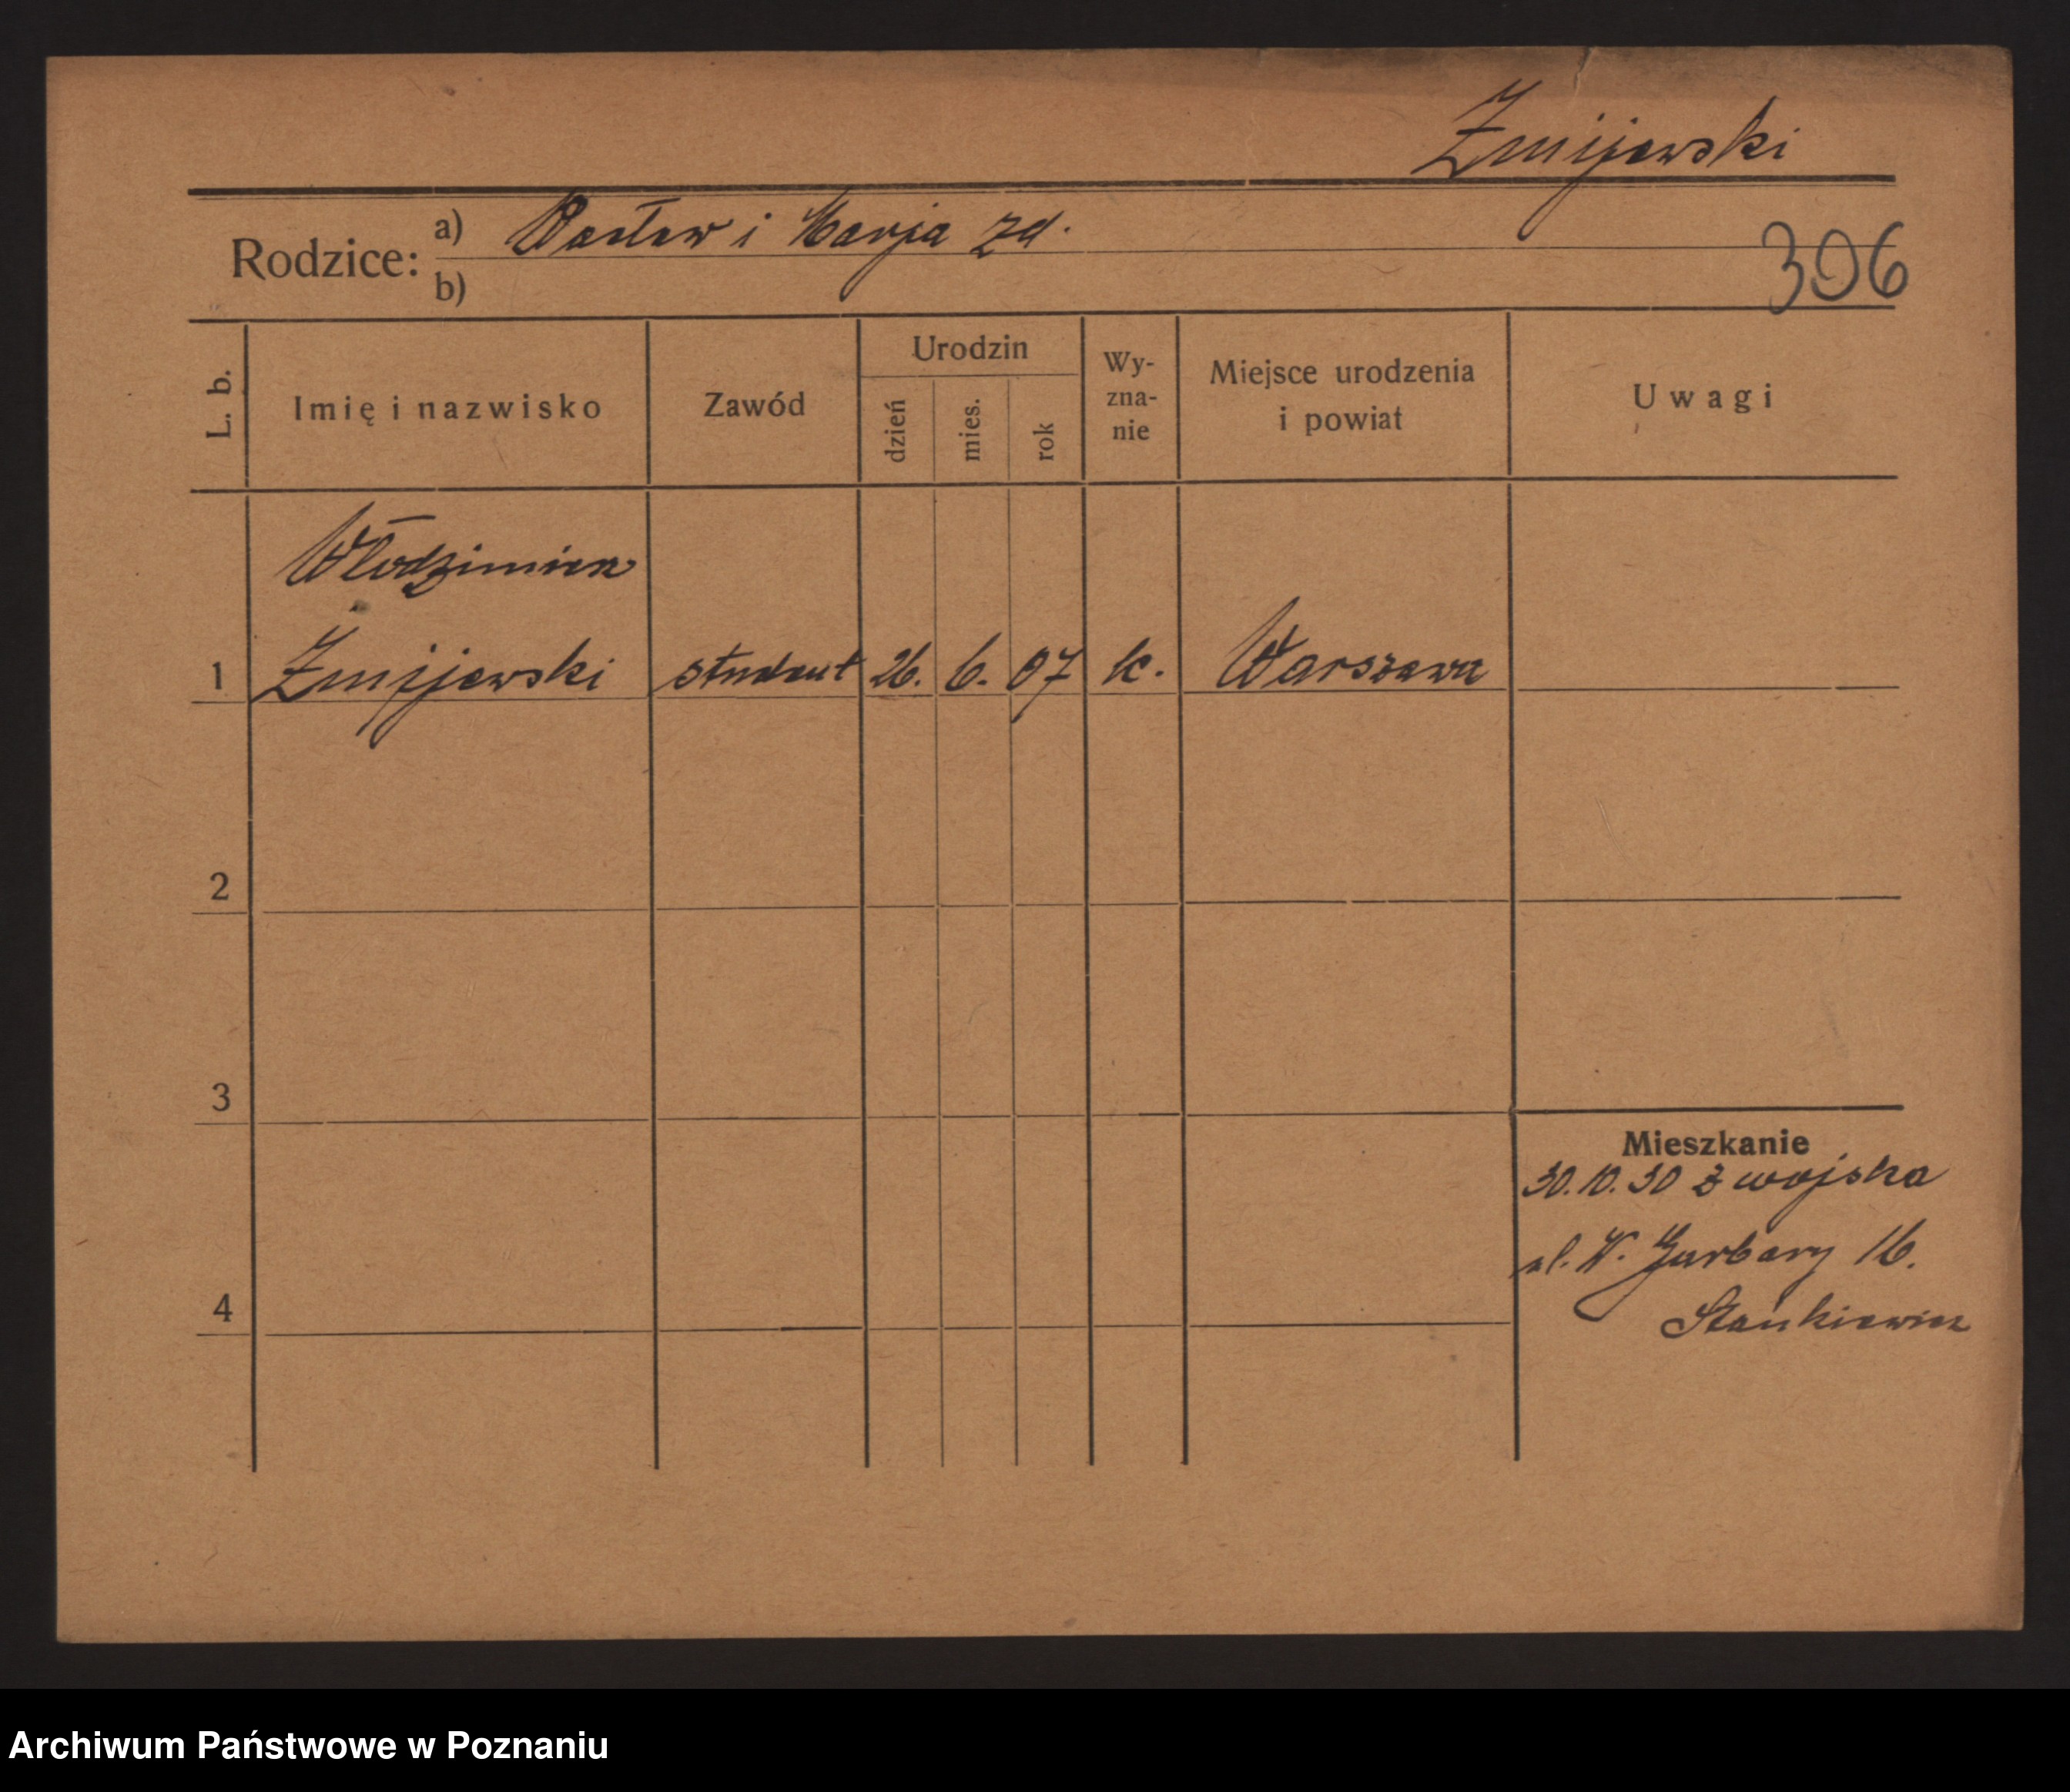 Zmijewski
Rodzice: a) Wacław i Marja zd.
b)
306
L. b.
Imię i nazwisko
Zawód
Urodzin
dzień
mies.
rok
Wy-
zna-
nie
Miejsce urodzenia
i powiat
Uwagi
Włodzimierz
1 Żmijewski student 26. 6. 07 k. Warszawa
2
3
4
Mieszkanie
30.10.30 z wojska
ul. W. Garbary 16.
Stankiewicz
Archiwum Państwowe w Poznaniu